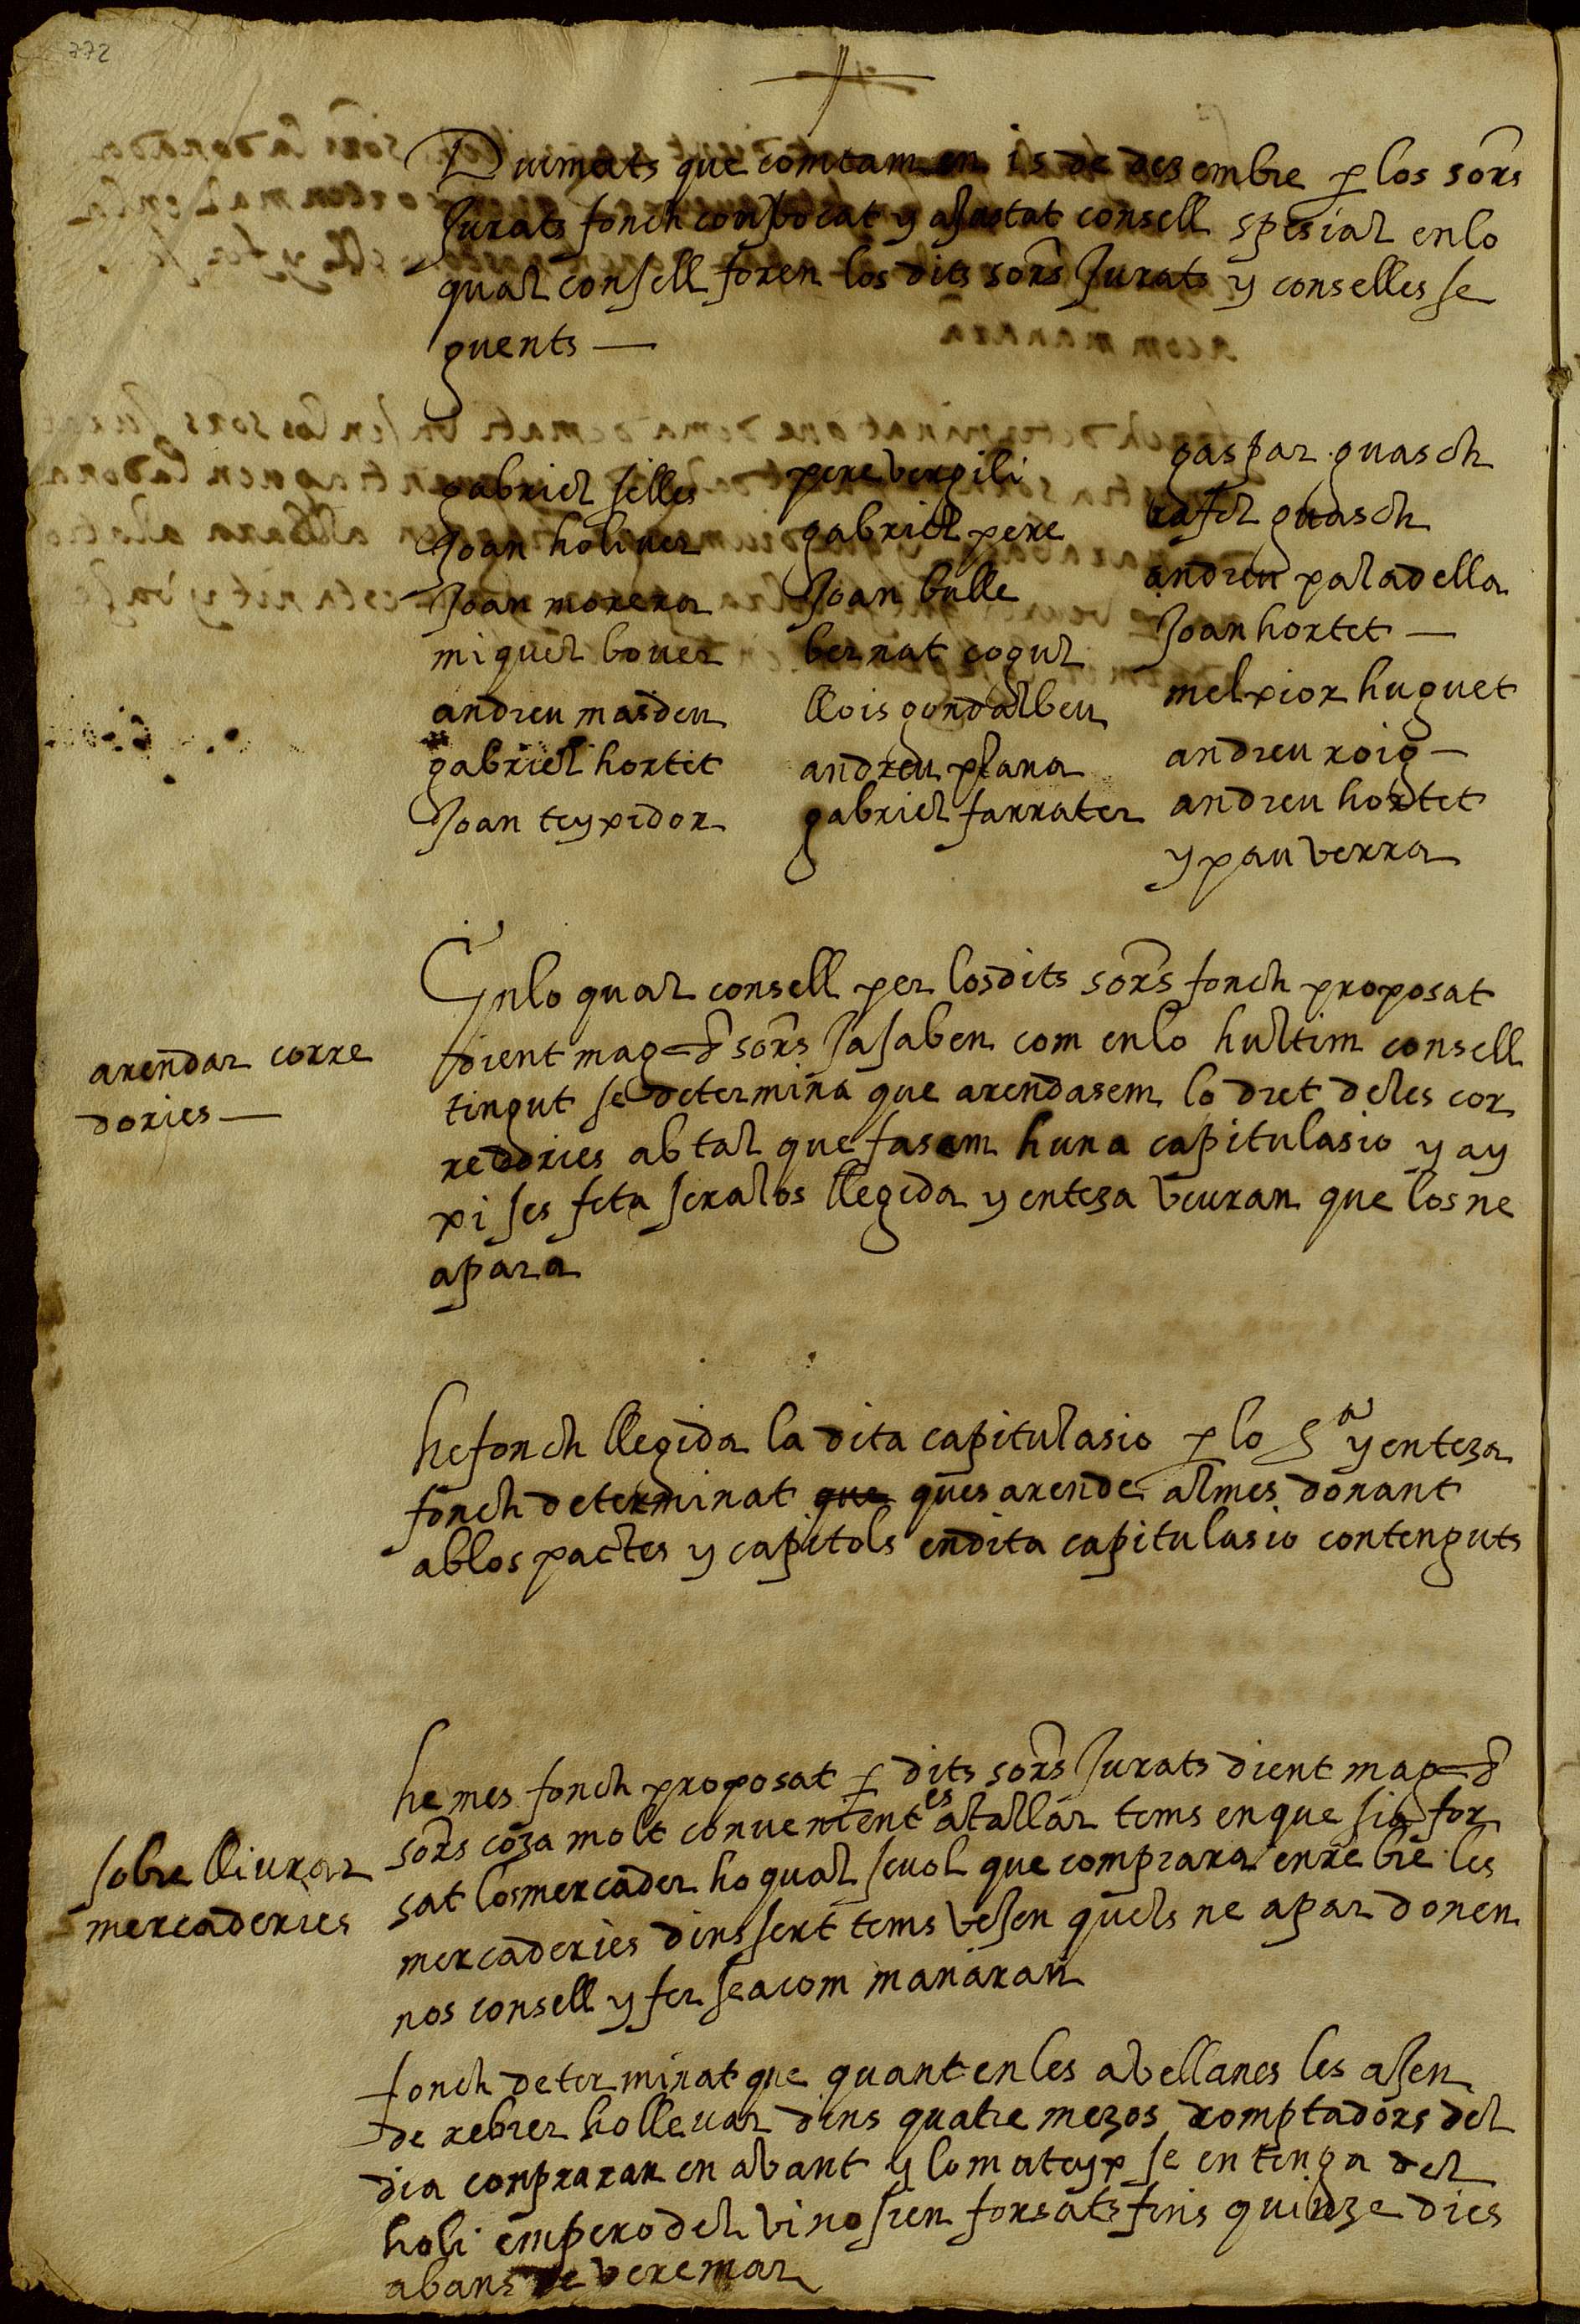 772
Duimats que comtam en is de desembre p los sors
Jurats fonch convocat y ajustat consell spesial enlo
qual consell foren los dits sors Jurats y conselles se
guents —
gabriel selles
Joan holiver
Joan morera
miquel bover
andreu masdeu
gabriel hortet
Joan teyxidor
pere vergili
gabriel pere
Joan bulle
bernat cogul
llois gondalbeu
andreu plana
gabriel farrater
gaspar guasch
rafel guasch
andreu paladella
Joan hortet —
melxior huguet
andreu roig —
andreu hortet
y pau verra
Enlo qual consell per los dits sors fonch proposat
arendar corre
dories —
dient mag sors Ja saben com enlo hultim consell
tingut se determina que arendasem lo dret deles cor
redories ab tal que fasem huna capitulasio y ay
xi ses feta seralos llegida y enteza veuran que los ne
apara
he fonch llegida la dita capitulasio p lo y enteza
fonch determinat que ques arende al mes donant
ab los pactes y capitols en dita capitulasio contenguts
he mes fonch proposat p dits sors Jurats dient mag
sors coza molt convenient es atallar tems en que sia for
sobre lliurar
mercaderies
sat los mercader ho qual sevol que comprara en rebre les
mercaderies dins sert tems vejen quels ne apar donen
nos consell y fer sea com manaran
fonch determinat que quant en les avellanes les ajen
de rebrer ho llevar dins quatre mezos comptadors del
dia conpraran en avant y lo mateyx se entenga del
holi empero del vi no sien forsats fins quinze dies
abans de veremar